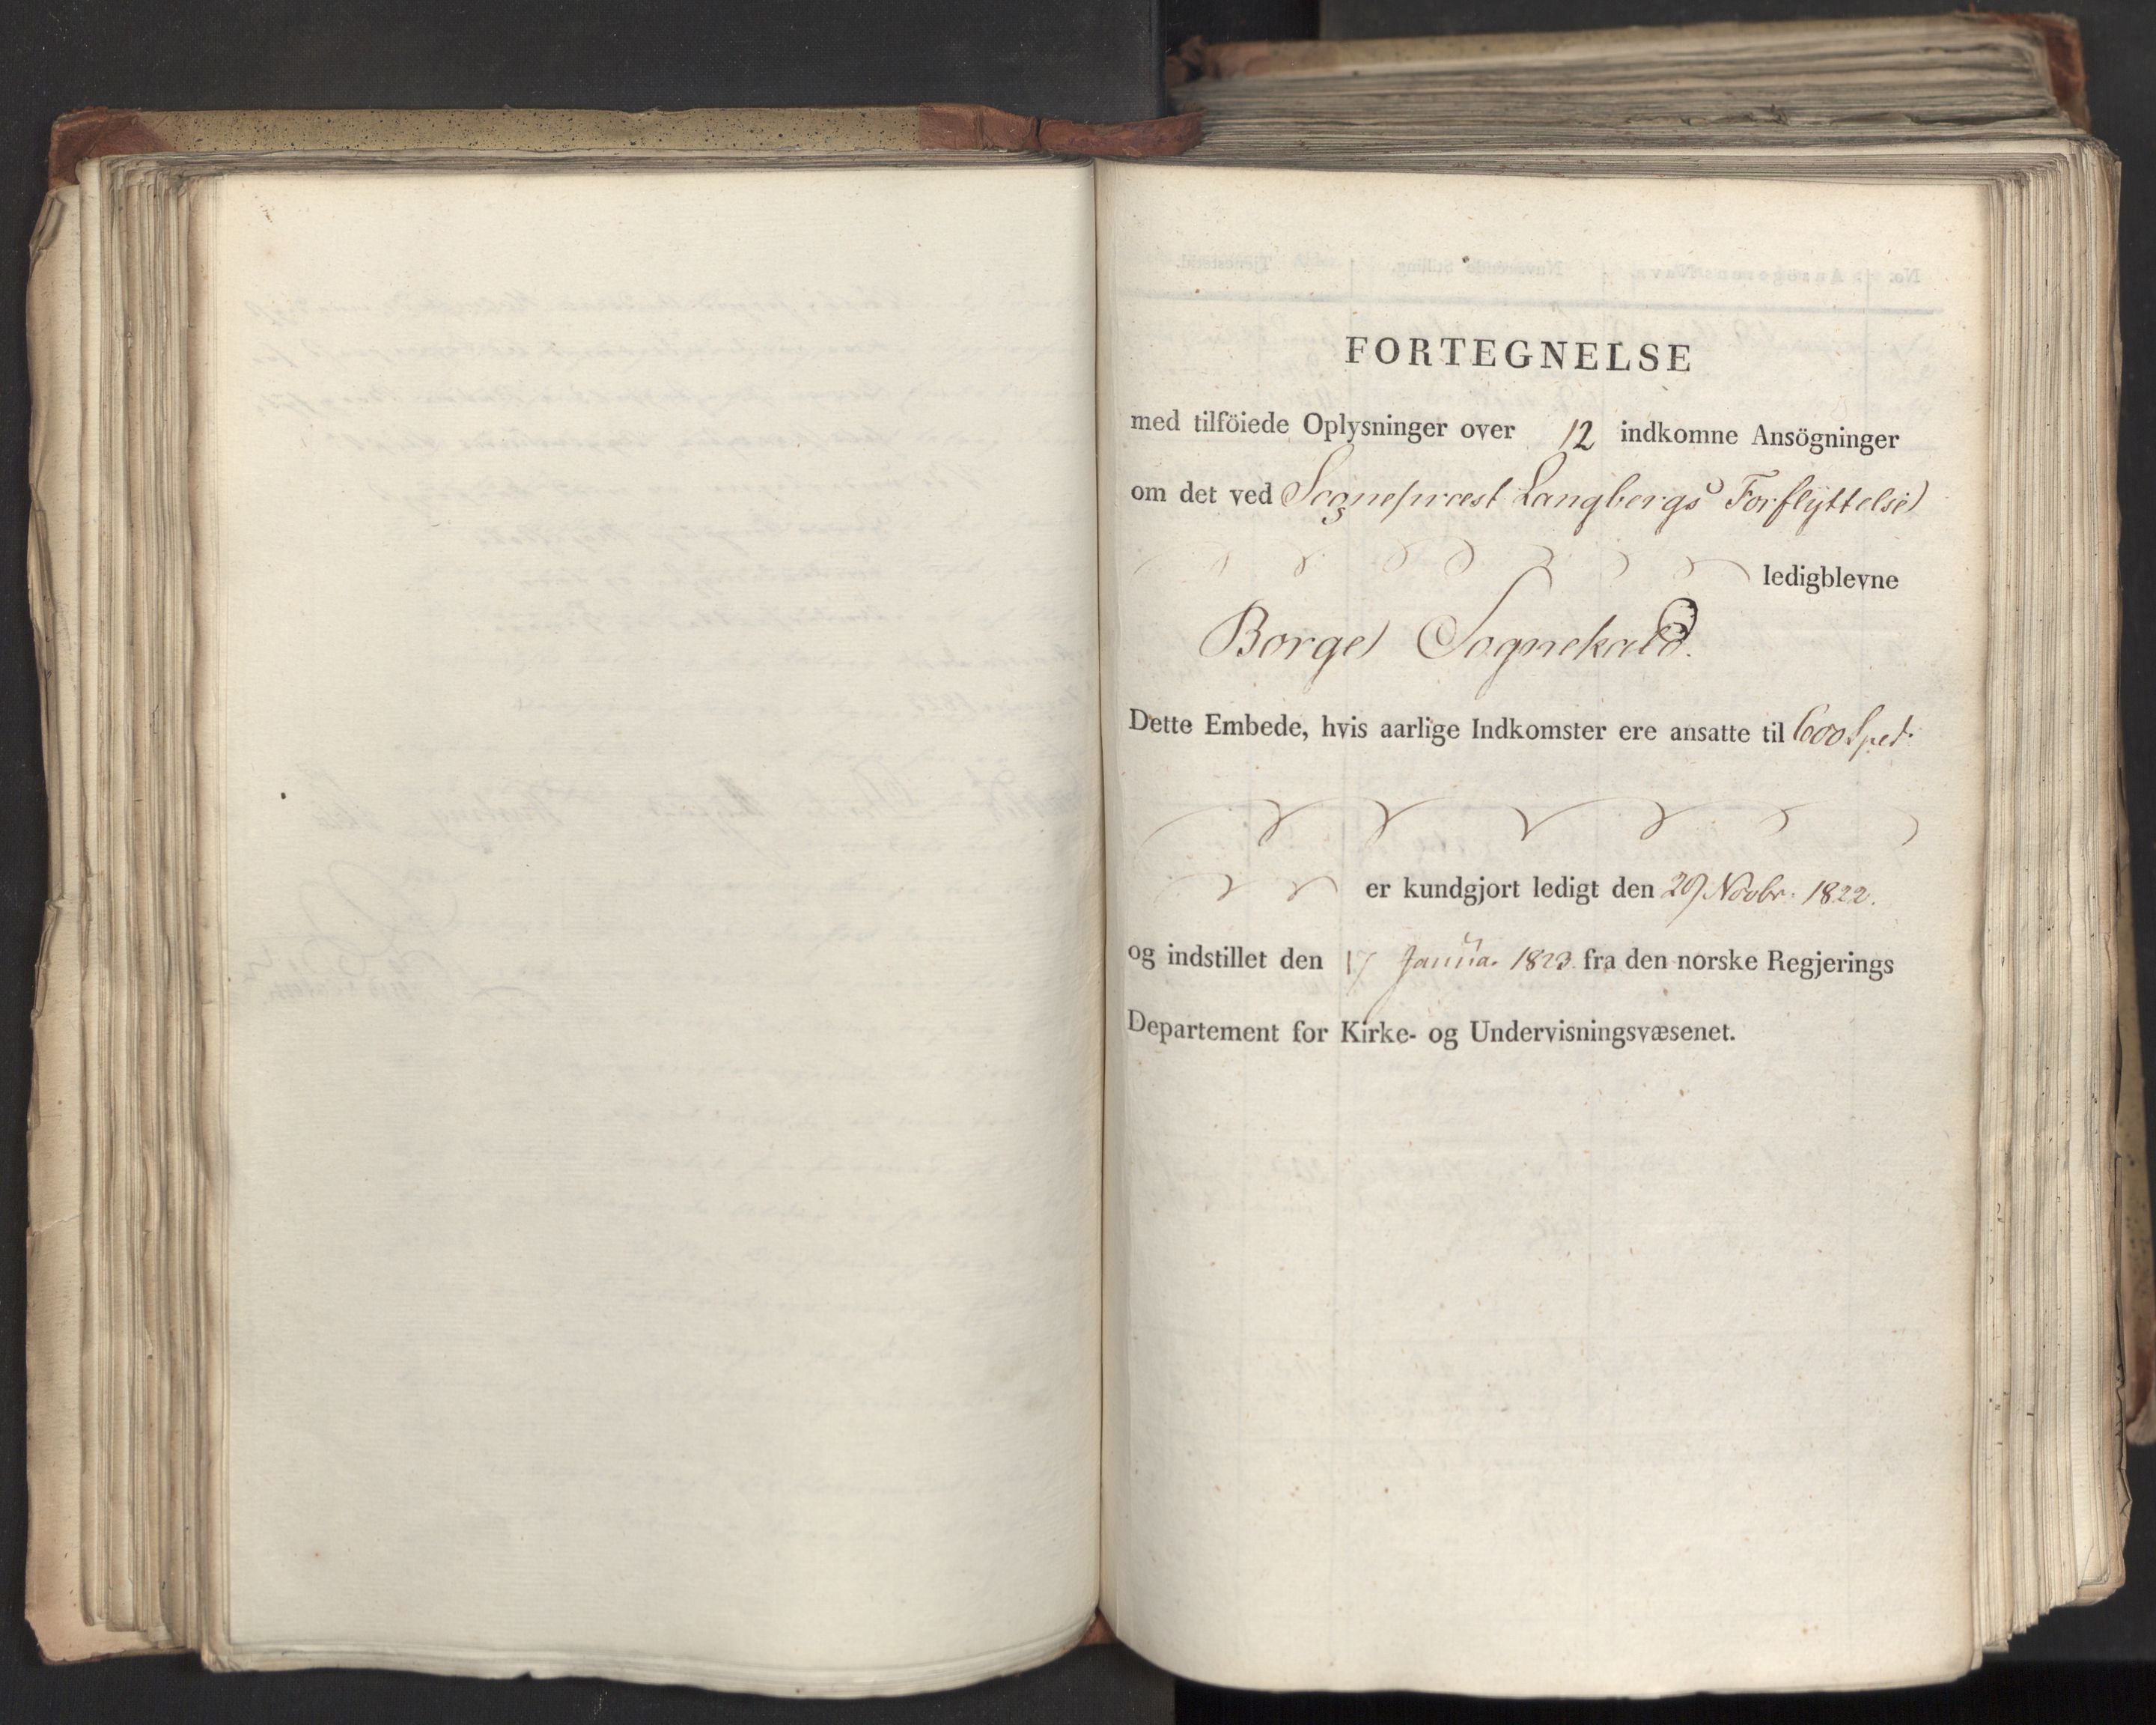 FORTEGNELSE
med tilföiede Oplysninger over 12 indkomne Ansögninger
om det ved Sognepræst Langbergs Forflyttelse
ledigblevne
Borge Sognekald.
Dette Embede, hvis aarlige Indkomster ere ansatte til 600 Spd.
er kundgjort ledigt den 29 Novbr. 1822.
og indstillet den 17 Janua. 1823 fra den norske Regjerings
Departement for Kirke- og Undervisningsvæsenet.